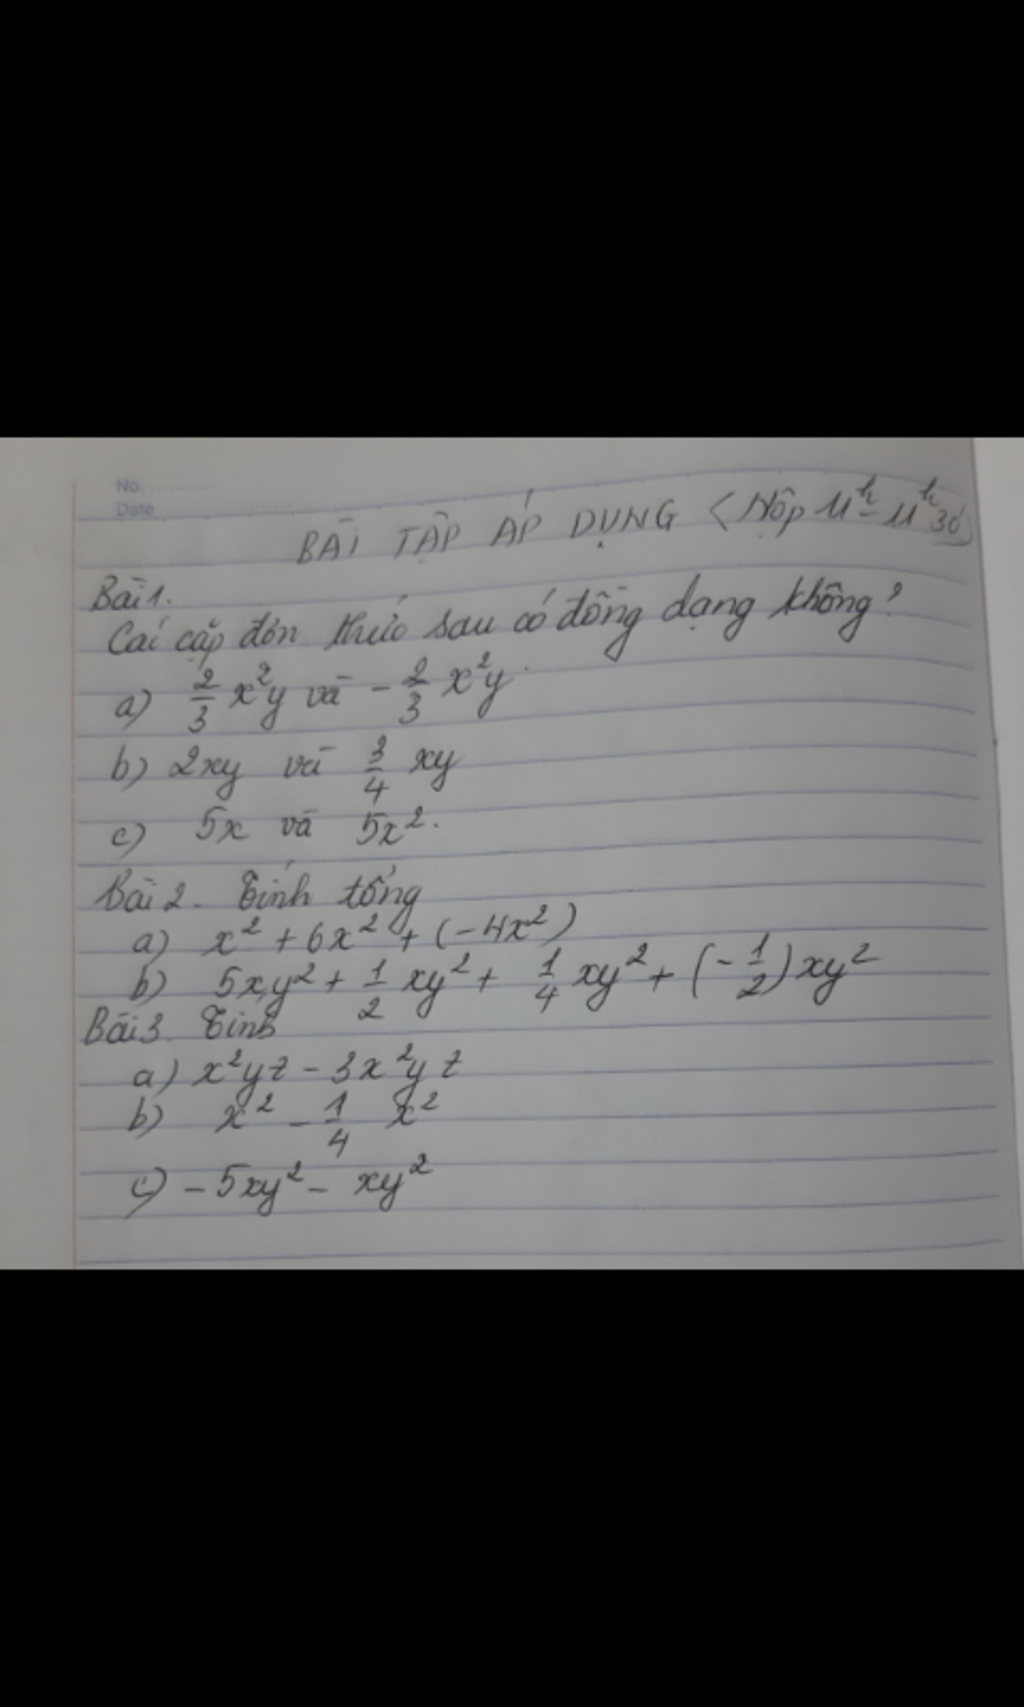 No. ............
Date
BÀI TẬP ÁP DỤNG (Nộp 11h - 11h30')
Bài 1.
Các cặp đơn thức sau có đồng dạng không?
a) 2/3 x²y và - 2/3 x²y.
b) 2xy và 3/4 xy
c) 5x và 5x².
Bài 2. Tính tổng
a) x² + 6x² + (-4x²)
b) 5xy² + 1/2 xy² + 1/4 xy² + (-1/2)xy²
Bài 3. Tính
a) x²yz - 3x²yz
b) x² - 1/4 x²
c) - 5xy² - xy²